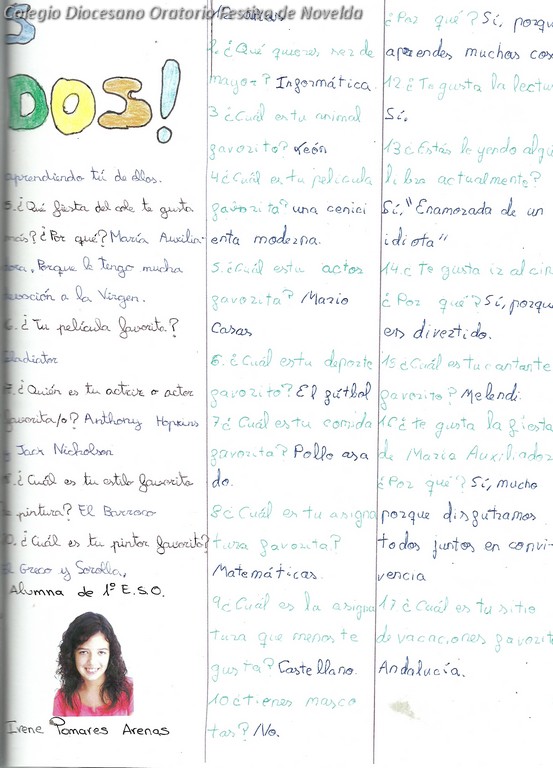 Colegio Diocesano Oratorio Festivo de Novelda
S
DOS!
aprendiendo tú de ellos.
5.¿Qué fiesta del cole te gusta
más? ¿Por qué? María Auxilia-
dora, Porque le tengo mucha
devoción a la Virgen.
6.¿Tu película favorita?
Gladiator
7.¿Quién es tu actriz o actor
favorita/o? Anthony Hopkins
y Jack Nicholson
8.¿Cuál es tu estilo favorito
de pintura? El Barroco
20.¿Cuál es tu pintor favorito?
El Greco y Sorolla,
Alumna de 1º E.S.O.
Irene Pomares Arenas
2.¿Qué quieres ser de
mayor? Informática.
3 ¿Cuál es tu animal
favorito? León
4 ¿Cuál es tu película
favorita? una cenici
enta moderna.
5.¿Cuál es tu actor
favorito? Mario
Casas
6.¿Cuál es tu deporte
favorito? El fútbol
7 ¿Cuál es tu comida
favorita? Pollo asa
do.
8 ¿Cuál es tu asigna
tura favorita?
Matemáticas.
9 ¿Cuál es la asigna
tura que menos te
gusta? Castellano.
10 ¿tienes masco
tas? No.
¿Por qué? Sí, porqu
aprendes muchas cos
12.¿Te gusta la lectu
Sí.
13 ¿Estás leyendo algú
libro actualmente?
Sí, "Enamorada de un
idiota"
14.¿Te gusta ir al cin
¿Por qué? Sí, porqu
es divertido.
15 ¿Cuál es tu cantante
favorito? Melendi.
16 ¿te gusta la fiesta
de María Auxiliador
¿Por qué? Sí, mucho
porque disfutramos
todos juntos en convi-
vencia
17 ¿Cuál es tu sitio
de vacaciones favorito
Andalucía.